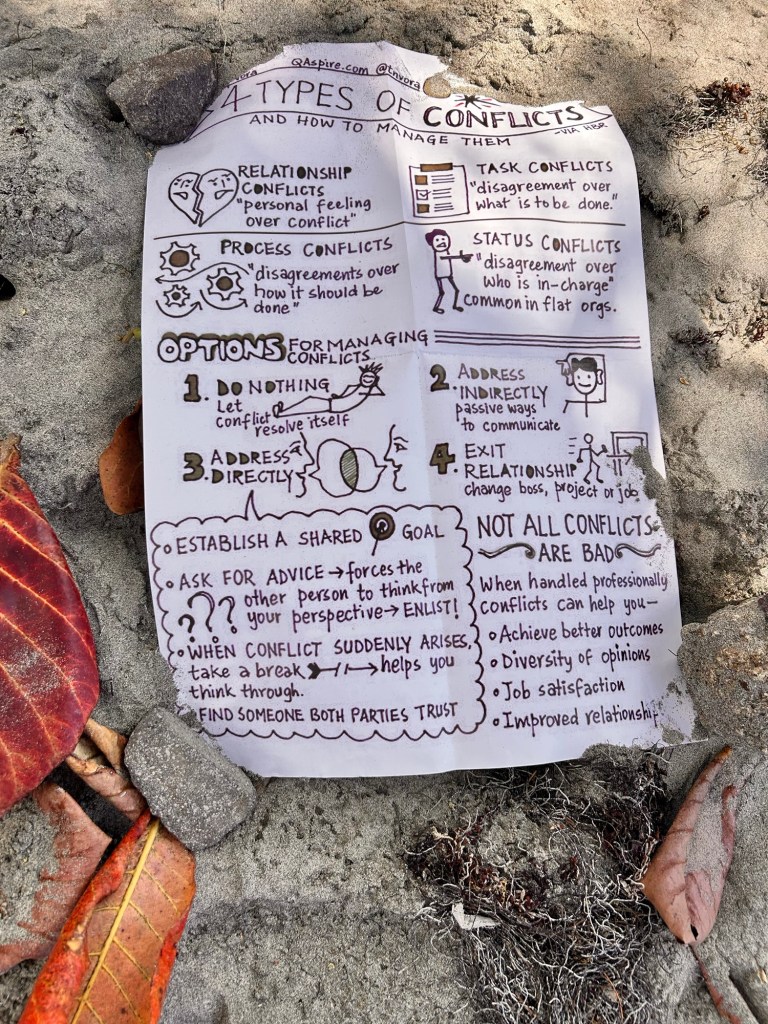 QAspire.com @tnvora
4 TYPES OF CONFLICTS
AND HOW TO MANAGE THEM
-VIA HBR
RELATIONSHIP
CONFLICTS
"personal feeling
over conflict"
TASK CONFLICTS
"disagreement over
what is to be done."
PROCESS CONFLICTS
"disagreements over
how it should be
done"
STATUS CONFLICTS
"disagreement over
who is in-charge"
common in flat orgs.
OPTIONS FOR MANAGING
CONFLICTS
1. DO NOTHING
Let
conflict resolve itself
2. ADDRESS
INDIRECTLY
passive ways
to communicate
3. ADDRESS
DIRECTLY
4. EXIT
RELATIONSHIP
change boss, project or job
• ESTABLISH A SHARED GOAL
• ASK FOR ADVICE → forces the
other person to think from
your perspective → ENLIST!
???
• WHEN CONFLICT SUDDENLY ARISES,
take a break → helps you
think through.
FIND SOMEONE BOTH PARTIES TRUST
NOT ALL CONFLICTS
ARE BAD
When handled professionally
conflicts can help you—
• Achieve better outcomes
• Diversity of opinions
• Job satisfaction
• Improved relationshi